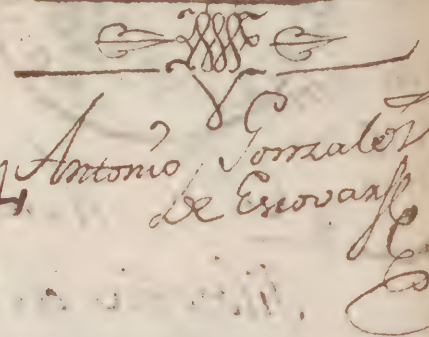 Antonio Gonzalez
de Escovar